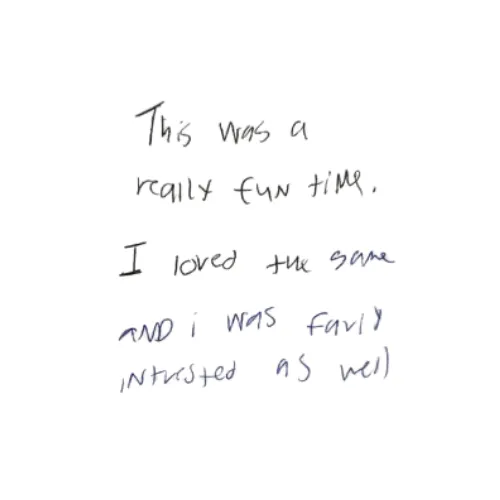 This was a
really fun time.
I loved the same
AND i was farly
intrested as well